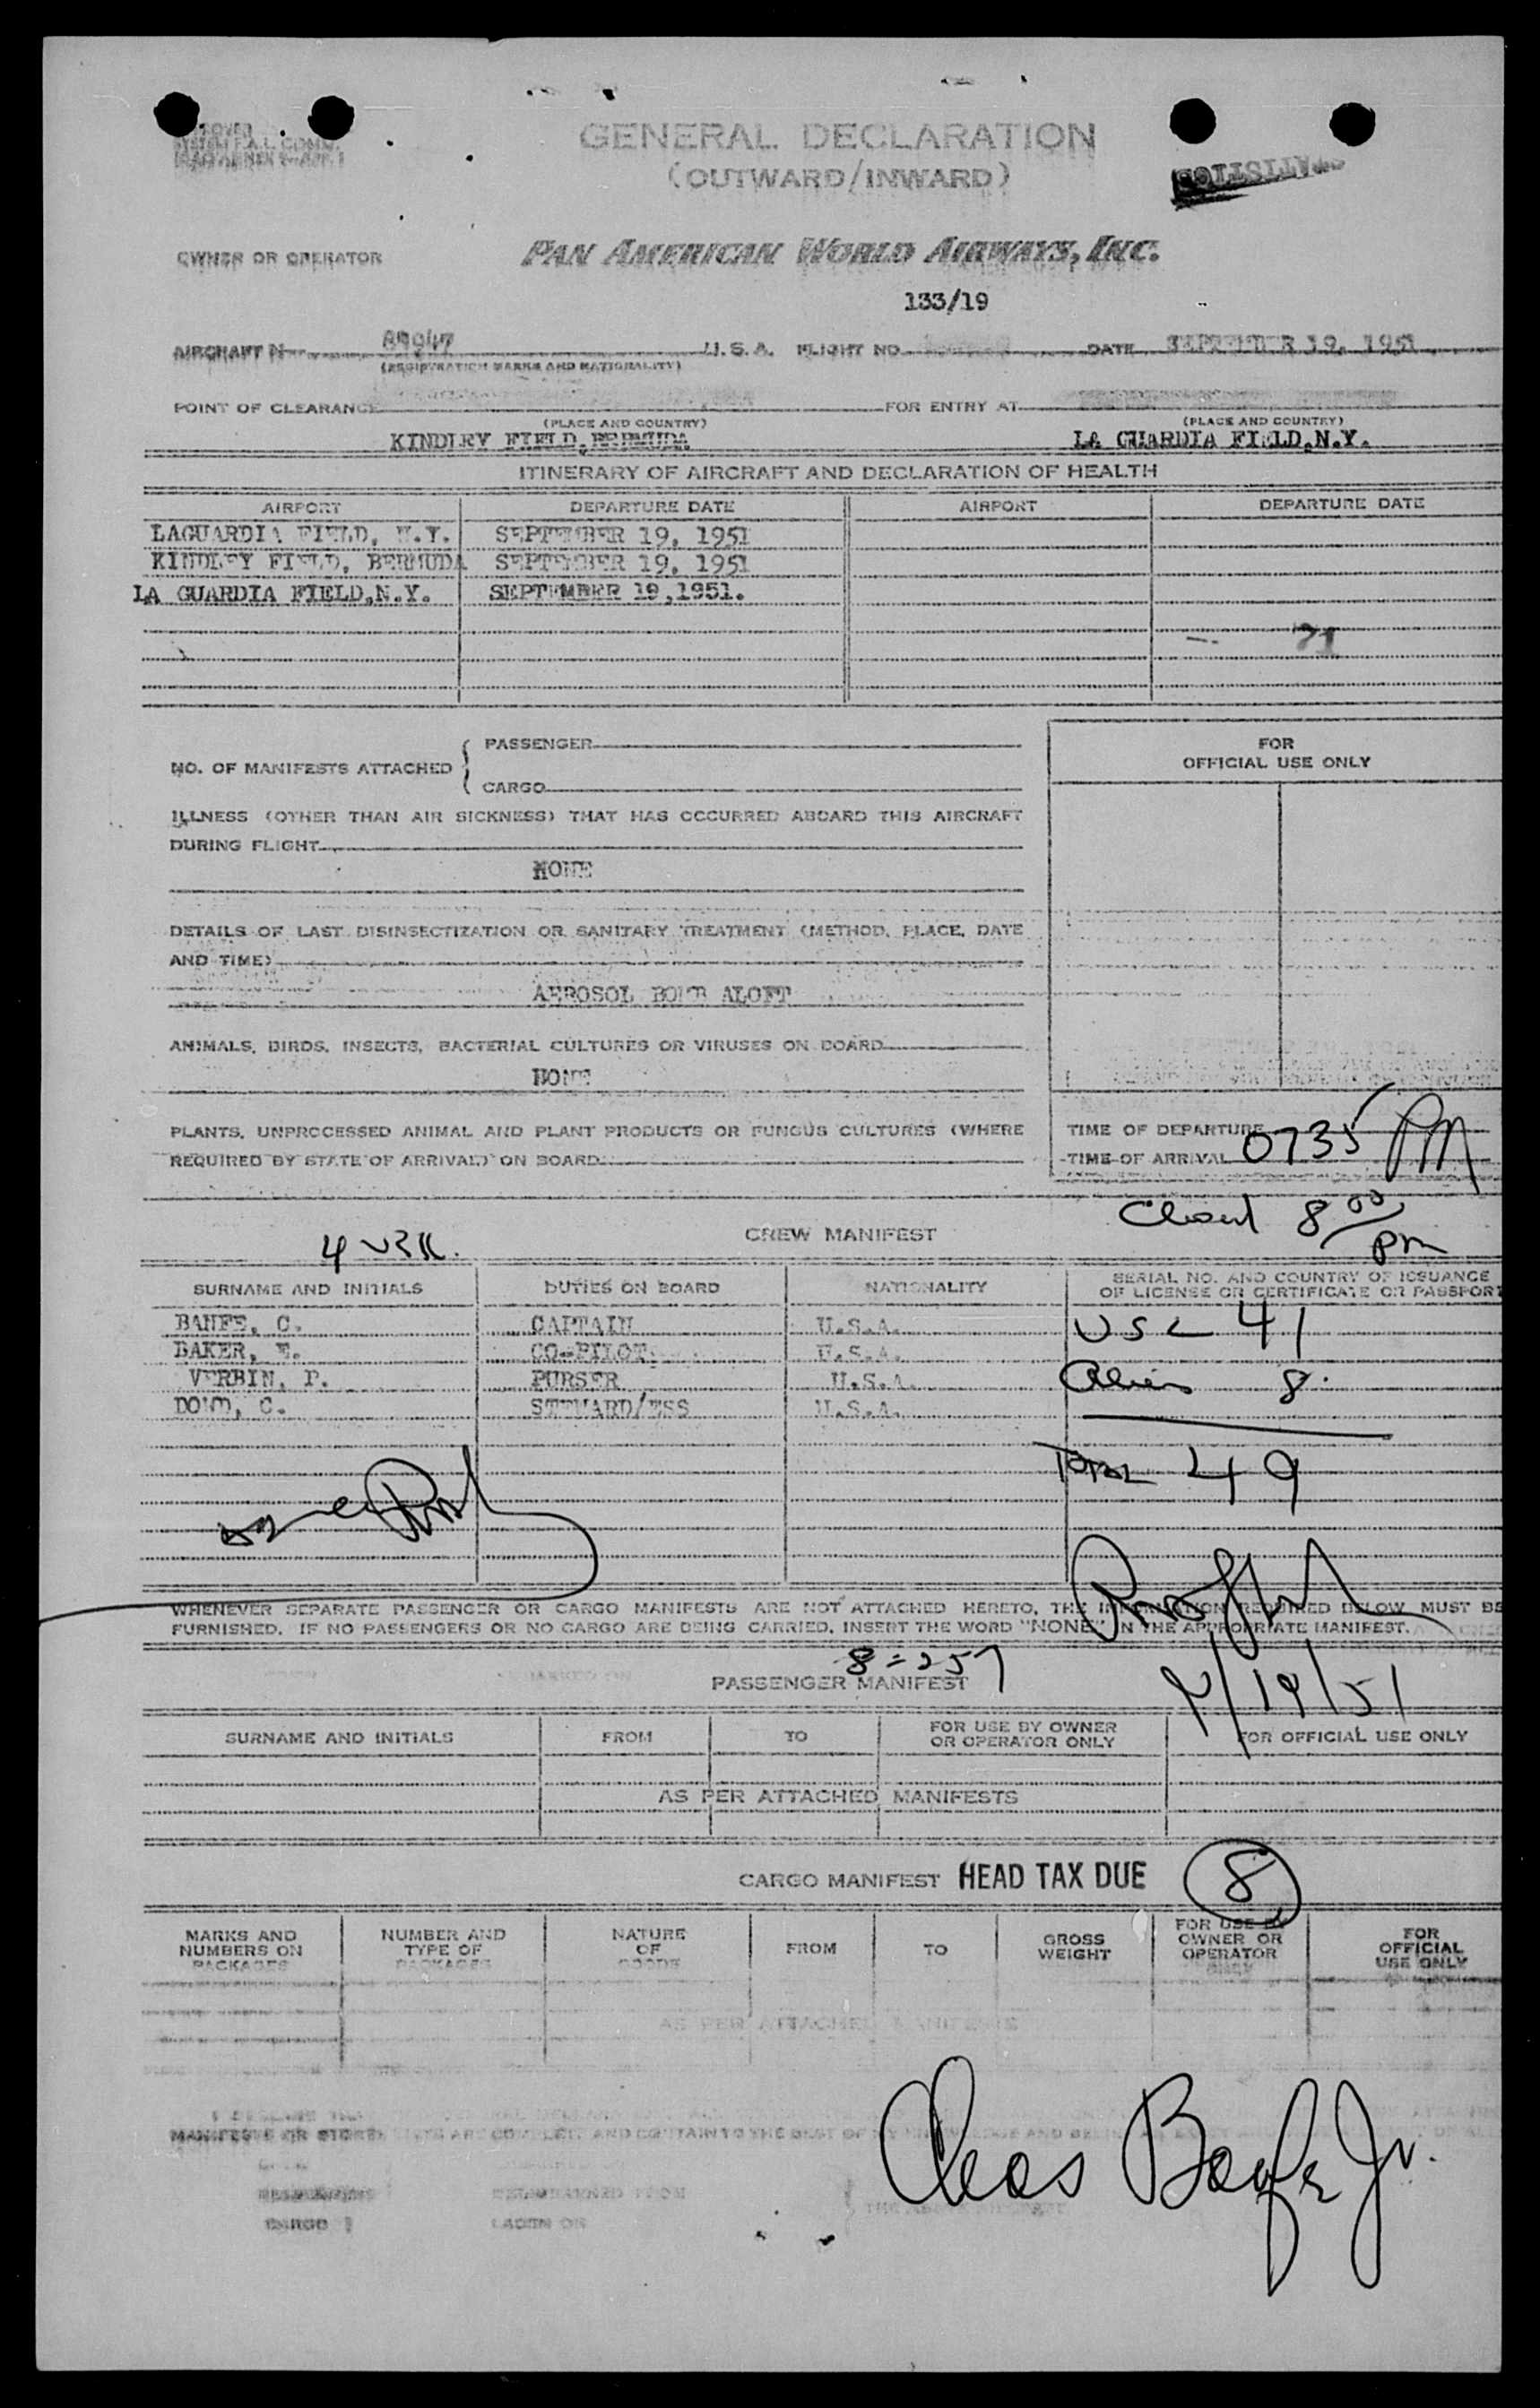 GENERAL DECLARATION
(OUTWARD/INWARD)
STATISTICS
OWNER OR OPERATOR PAN AMERICAN WORLD AIRWAYS, INC.
133/19
AIRCRAFT N U.S.A. FLIGHT NO. DATE SEPTEMBER 19, 1951
(REGISTRATION MARKS AND NATIONALITY)
POINT OF CLEARANCE FOR ENTRY AT
(PLACE AND COUNTRY) (PLACE AND COUNTRY)
KINDLEY FIELD, BERMUDA LA GUARDIA FIELD, N.Y.
ITINERARY OF AIRCRAFT AND DECLARATION OF HEALTH
AIRPORT DEPARTURE DATE AIRPORT DEPARTURE DATE
LAGUARDIA FIELD, N.Y. SEPTEMBER 19, 1951
KINDLEY FIELD, BERMUDA SEPTEMBER 19, 1951
LA GUARDIA FIELD,N.Y. SEPTEMBER 19,1951.
71
NO. OF MANIFESTS ATTACHED { PASSENGER
CARGO
FOR
OFFICIAL USE ONLY
ILLNESS (OTHER THAN AIR SICKNESS) THAT HAS OCCURRED ABOARD THIS AIRCRAFT
DURING FLIGHT
NONE
DETAILS OF LAST DISINSECTIZATION OR SANITARY TREATMENT (METHOD, PLACE, DATE
AND TIME)
AEROSOL BOMB ALOFT
ANIMALS, BIRDS, INSECTS, BACTERIAL CULTURES OR VIRUSES ON BOARD
NONE
PLANTS, UNPROCESSED ANIMAL AND PLANT PRODUCTS OR FUNGUS CULTURES (WHERE
REQUIRED BY STATE OF ARRIVAL) ON BOARD
TIME OF DEPARTURE
TIME OF ARRIVAL 0735 PM
8 00 pm
CREW MANIFEST
SURNAME AND INITIALS DUTIES ON BOARD NATIONALITY SERIAL NO. AND COUNTRY OF ISSUANCE
OF LICENSE OR CERTIFICATE OR PASSPORT
BANFE, C. CAPTAIN U.S.A. USC 41
BAKER, E. CO-PILOT U.S.A.
VERBIN, P. PURSER U.S.A. Alien 8
C. STEWARD/ESS U.S.A.
Total 49
WHENEVER SEPARATE PASSENGER OR CARGO MANIFESTS ARE NOT ATTACHED HERETO, THE INFORMATION REQUIRED BELOW MUST BE
FURNISHED. IF NO PASSENGERS OR NO CARGO ARE BEING CARRIED, INSERT THE WORD "NONE" IN THE APPROPRIATE MANIFEST.
8=257
PASSENGER MANIFEST
9/19/51
SURNAME AND INITIALS FROM TO FOR USE BY OWNER
OR OPERATOR ONLY FOR OFFICIAL USE ONLY
AS PER ATTACHED MANIFESTS
CARGO MANIFEST HEAD TAX DUE 8
MARKS AND
NUMBERS ON
PACKAGES
NUMBER AND
TYPE OF
PACKAGES
NATURE
OF
GOODS
FROM
TO
GROSS
WEIGHT
FOR USE BY
OWNER OR
OPERATOR
ONLY
FOR
OFFICIAL
USE ONLY
AS PER ATTACHED MANIFESTS
Chas Banfe Jr.
CARGO LADEN ON